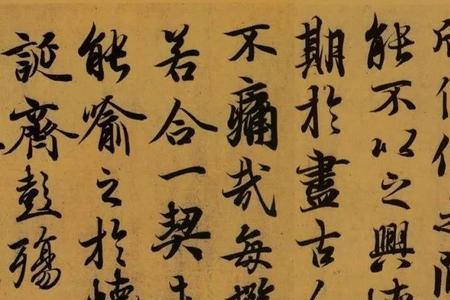 仰之
能不以之興懷
期於盡古人
不痛哉每攬
若合一契未
能喻之於懷
誕齊彭殤